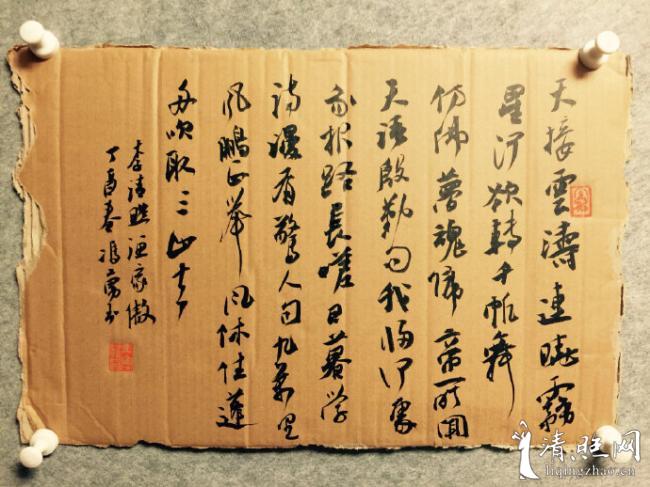 天接雲濤連曉霧
星河欲轉千帆舞
仿佛夢魂歸帝所聞
天語殷勤問我歸何處
我報路長嗟日暮學
詩謾有驚人句九萬里
風鵬正舉風休住蓬
舟吹取三山去
李清照漁家傲
丁酉春 書
liqingzhao.cn